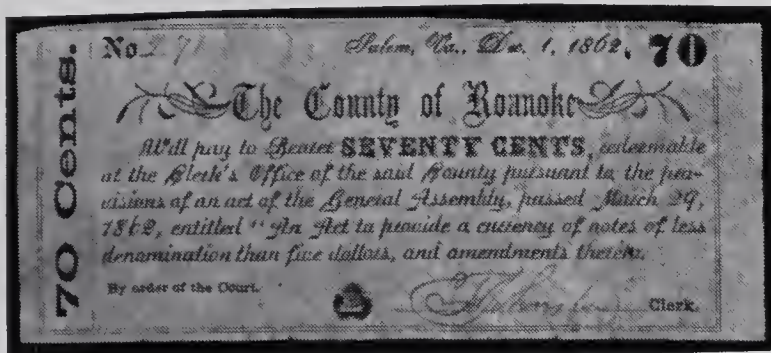 70 Cents.
No. 271 Salem, Va., Dec. 1, 1862. 70
The County of Roanoke
Will pay to Bearer SEVENTY CENTS, redeemable
at the Clerk's Office of the said County pursuant to the pro-
visions of an act of the General Assembly, passed March 29,
1862, entitled "An Act to provide a currency of notes of less
denomination than five dollars, and amendments thereto.
By order of the Court. Clerk.